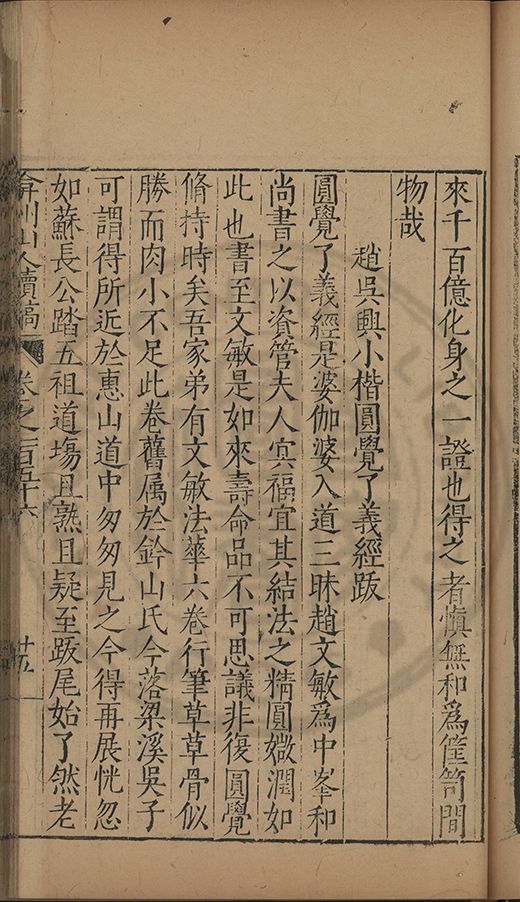 來千百億化身之一證也得之者慎無和為筐笥間
物哉
趙吳興小楷圓覺了義經跋
圓覺了義經是婆伽婆入道三昧趙文敏為中峯和
尚書之以資管夫人冥福宜其結法之精圓媺潤如
此也書至文敏是如來壽命品不可思議非復圓覺
脩持時矣吾家弟有文敏法華六卷行筆草草骨似
勝而肉小不足此卷舊属於鈐山氏今落梁溪吳子
可謂得所近於惠山道中匆匆見之今得再展恍忽
如蘇長公踏五祖道塲且熟且疑至跋尾始了然老
弇州山人續稿 卷之一百五十六